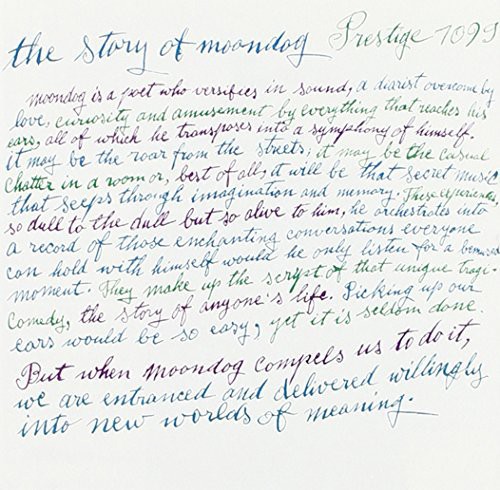 the story of moondog Prestige 7099
moondog is a poet who versifies in sound, a diarist overcome by
love, curiosity and amusement by everything that reaches his
ears, all of which he transposes into a symphony of himself.
it may be the roar from the streets; it may be the casual
chatter in a room or, best of all, it will be that secret music
that seeps through imagination and memory. These experiences,
so dull to the dull but so alive to him, he orchestrates into
a record of those enchanting conversations everyone
can hold with himself would he only listen for a bemused
moment. They make up the script of that unique tragi-
comedy, the story of anyone's life. Picking up our
ears would be so easy, yet it is seldom done.
But when moondog compels us to do it,
we are entranced and delivered willingly
into new worlds of meaning.